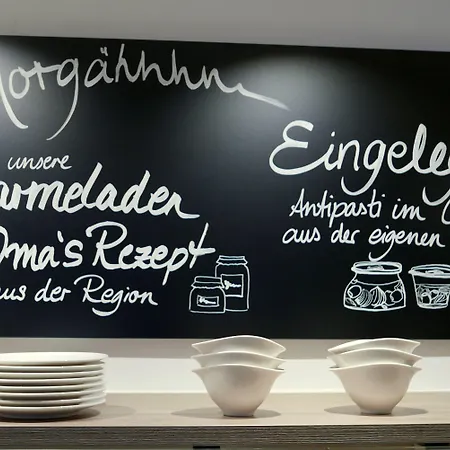 Morgähnhn
unsere
Marmeladen
Oma's Rezept
aus der Region
Eingele
Antipasti im
aus der eigenen